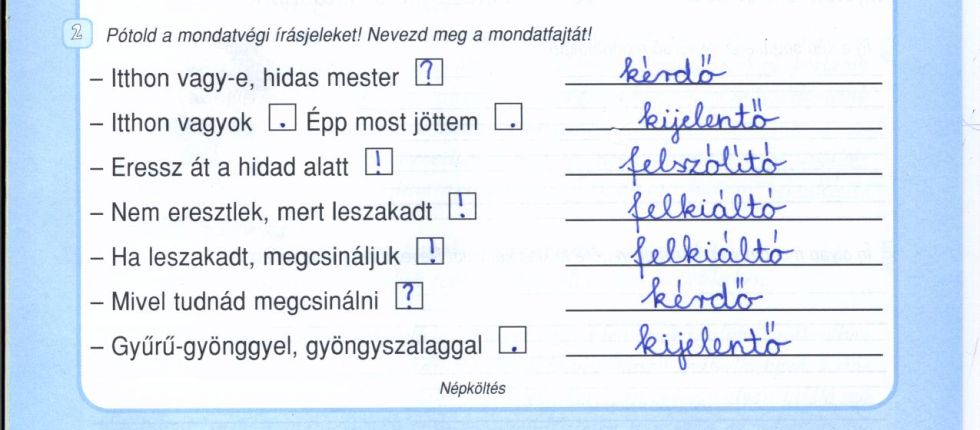 2 Pótold a mondatvégi írásjeleket! Nevezd meg a mondatfajtát!
– Itthon vagy-e, hidas mester ? kérdő
– Itthon vagyok . Épp most jöttem . kijelentő
– Eressz át a hidad alatt ! felszólító
– Nem eresztlek, mert leszakadt ! felkiáltó
– Ha leszakadt, megcsináljuk ! felkiáltó
– Mivel tudnád megcsinálni ? kérdő
– Gyűrű-gyönggyel, gyöngyszalaggal . kijelentő
Népköltés